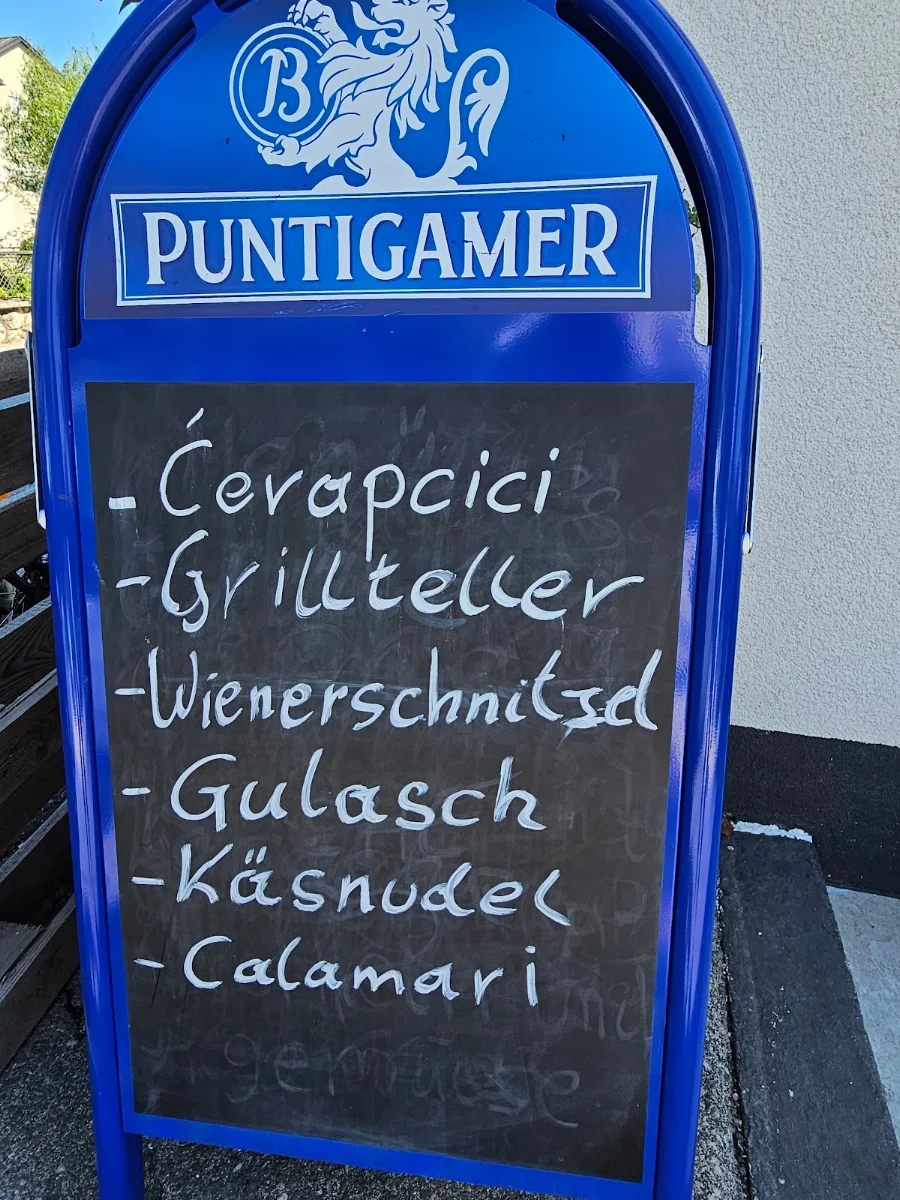 B
PUNTIGAMER
- Ćerapcici
- Grillteller
- Wienerschnitzel
- Gulasch
- Käsnudel
- Calamari